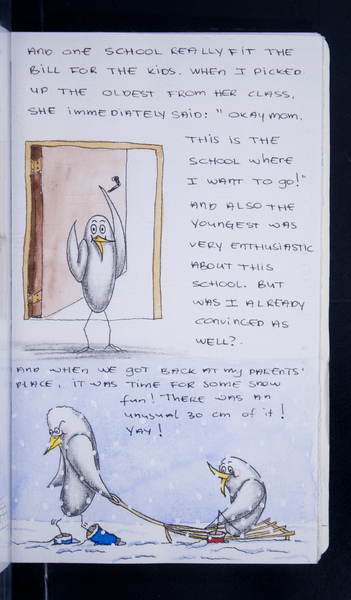 AND ONE SCHOOL REALLY FIT THE
BILL FOR THE KIDS. WHEN I PICKED
UP THE OLDEST FROM HER CLASS,
SHE IMMEDIATELY SAID: "OKAY MOM,
THIS IS THE
SCHOOL WHERE
I WANT TO GO!"
AND ALSO THE
YOUNGEST WAS
VERY ENTHUSIASTIC
ABOUT THIS
SCHOOL. BUT
WAS I ALREADY
CONVINCED AS
WELL?
AND WHEN WE GOT BACK AT MY PARENTS'
PLACE, IT WAS TIME FOR SOME SNOW
FUN! THERE WAS AN
UNUSUAL 30 CM OF IT!
YAY!